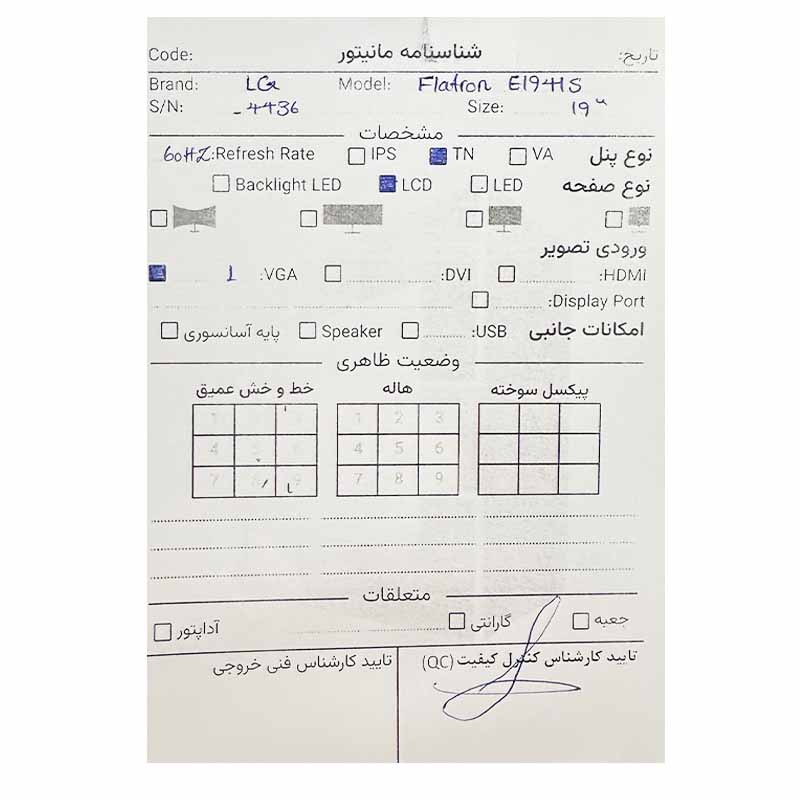 تاریخ: شناسنامه مانیتور Code:
Brand: LG Model: Flatron E1941S
S/N: - 4436 Size: 19"
مشخصات
نوع پنل VA TN IPS Refresh Rate: 60HZ
نوع صفحه LED LCD Backlight LED
ورودی تصویر
HDMI: DVI: VGA: 1
Display Port:
امکانات جانبی USB: Speaker پایه آسانسوری
وضعیت ظاهری
پیکسل سوخته هاله خط و خش عمیق
1 2 3 1 3
4 5 6 4 5 6
7 8 9 7 8 9
متعلقات
جعبه گارانتی آداپتور
تایید کارشناس کنترل کیفیت (QC) تایید کارشناس فنی خروجی